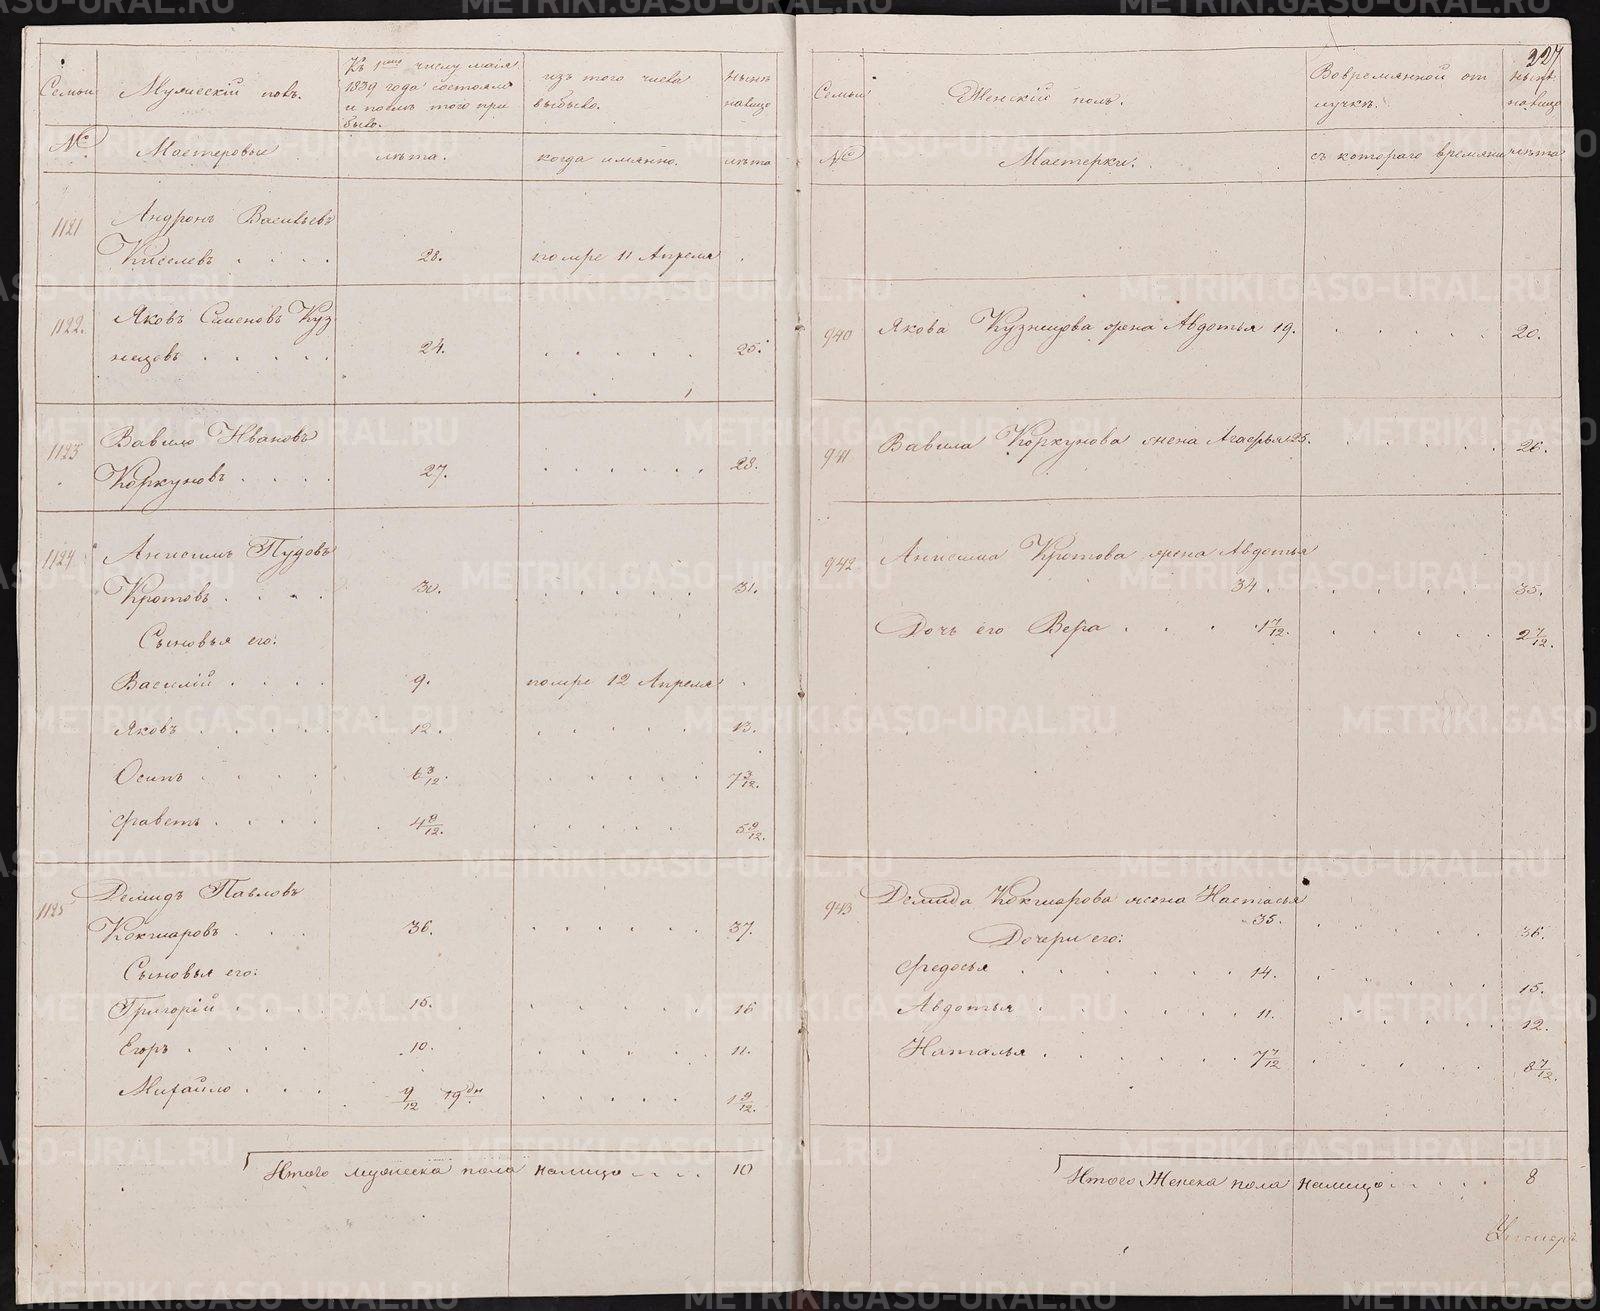 227
Семьи
Мужескій полъ.
Къ 1му числу маія
1839 года состояло
и послѣ того при
было.
изъ того числа
выбыло.
нынѣ
налицо
№
Мастеровые
лѣта.
когда имянно.
лѣта
1121
Андронъ Васильевъ
Киселевъ . . . . 28. помре 11 Апреля
1122.
Яковъ Семеновъ Куз
нецовъ . . . . . 24. . . . . . 25.
1123
Вавило Ивановъ
Коркуновъ . . . . 27. . . . . . . 28.
1124
Анисимъ Пудовъ
Кротовъ . . . . 30. . . . . . . 31.
Сыновья его:
Василій . . . . 9. помре 12 Апреля
Яковъ . . . . . 12. . . . . . 13.
Осипъ . . . . 6 3/12. . . . . . 7 3/12.
Фаветъ . . . . 4 8/12. . . . . . 5 8/12.
1125
Демидъ Павловъ
Кокшаровъ . . . 36. . . . . . . 37.
Сыновья его:
Григорій . . . . 15. . . . . . 16
Егоръ . . . . 10. . . . . . 11.
Михайло . . . 9/12 19дн . . . . . 1 9/12.
Итого мужеска пола налицо . . . . 10
Семьи
Женскій полъ.
Вовремянной от
лучкѣ.
нынѣ
налицо
№
Мастерки.
съ котораго времяни
лѣта
940 Якова Кузнецова жена Авдотья 19. . . . . . 20.
941 Вавила Коркунова жена Агафья 25. . . . . . 26.
942 Анисима Кротова жена Авдотья
34. . . . . . 35.
Дочь его Вера . . . 1 7/12. . . . . . 2 7/12.
943 Демида Кокшарова жена Настасья
35. . . . . . 36.
Дочери его:
Федосья . . . . . . 14. . . . . . 15.
Авдотья . . . . . . 11. . . . . . 12.
Наталья . . . . . . 7 7/12 . . . . . 8 7/12.
Итого Женска пола налицо . . . . . 8
METRIKI.GASO-URAL.RU